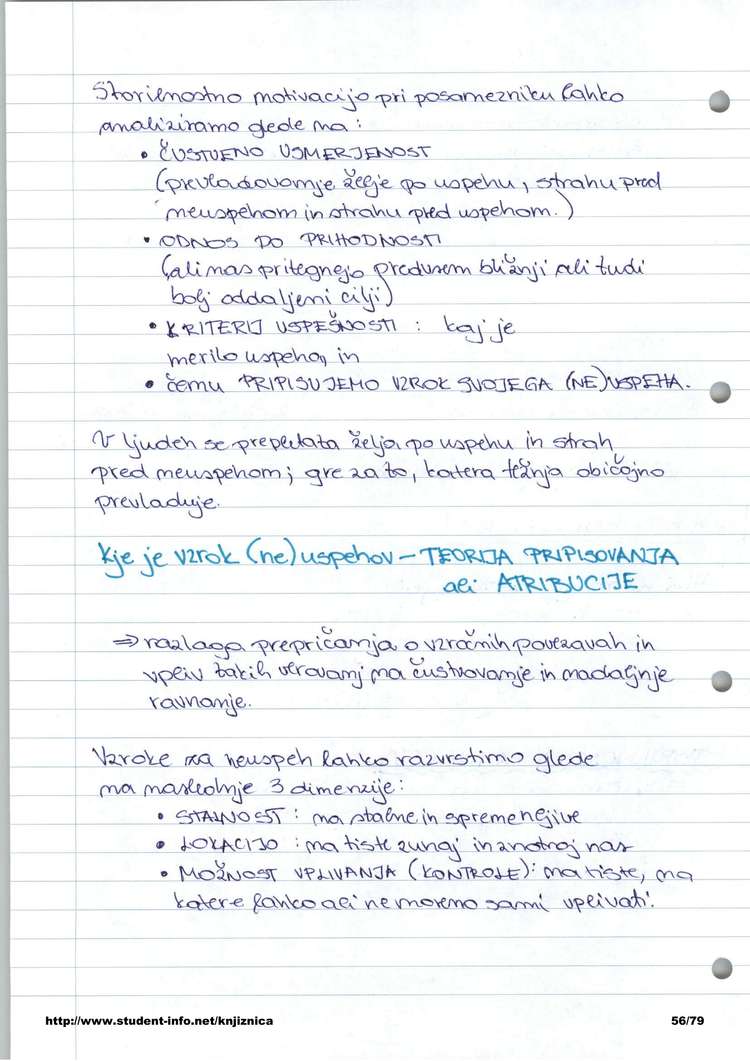 Storilnostno motivacijo pri posamezniku lahko
analiziramo glede na:
• ČUSTVENO USMERJENOST
(prevladovanje želje po uspehu, strahu pred
neuspehom in strahu pred uspehom.)
• ODNOS DO PRIHODNOSTI
(ali nas pritegnejo predvsem bližnji ali tudi
bolj oddaljeni cilji)
• KRITERIJ USPEŠNOSTI : kaj je
merilo uspeha, in
• čemu PRIPISUJEMO VZROK SVOJEGA (NE)USPEHA.
V ljudeh se prepleta želja po uspehu in strah
pred neuspehom; gre za to, katera težnja običajno
prevladuje.
Kje je vzrok (ne)uspehov – TEORIJA PRIPISOVANJA
ali ATRIBUCIJE
⇒ razlaga prepričanja o vzročnih povezavah in
vpliv takih verovanj na čustvovanje in nadaljnje
ravnanje.
Vzroke za neuspeh lahko razvrstimo glede
na naslednje 3 dimenzije:
• STALNOST : na stalne in spremenljive
• LOKACIJO : na tiste zunaj in znotraj nas
• MOŽNOST VPLIVANJA (KONTROLE): na tiste, na
katere lahko ali ne moremo sami vplivati.
http://www.student-info.net/knjiznica 56/79